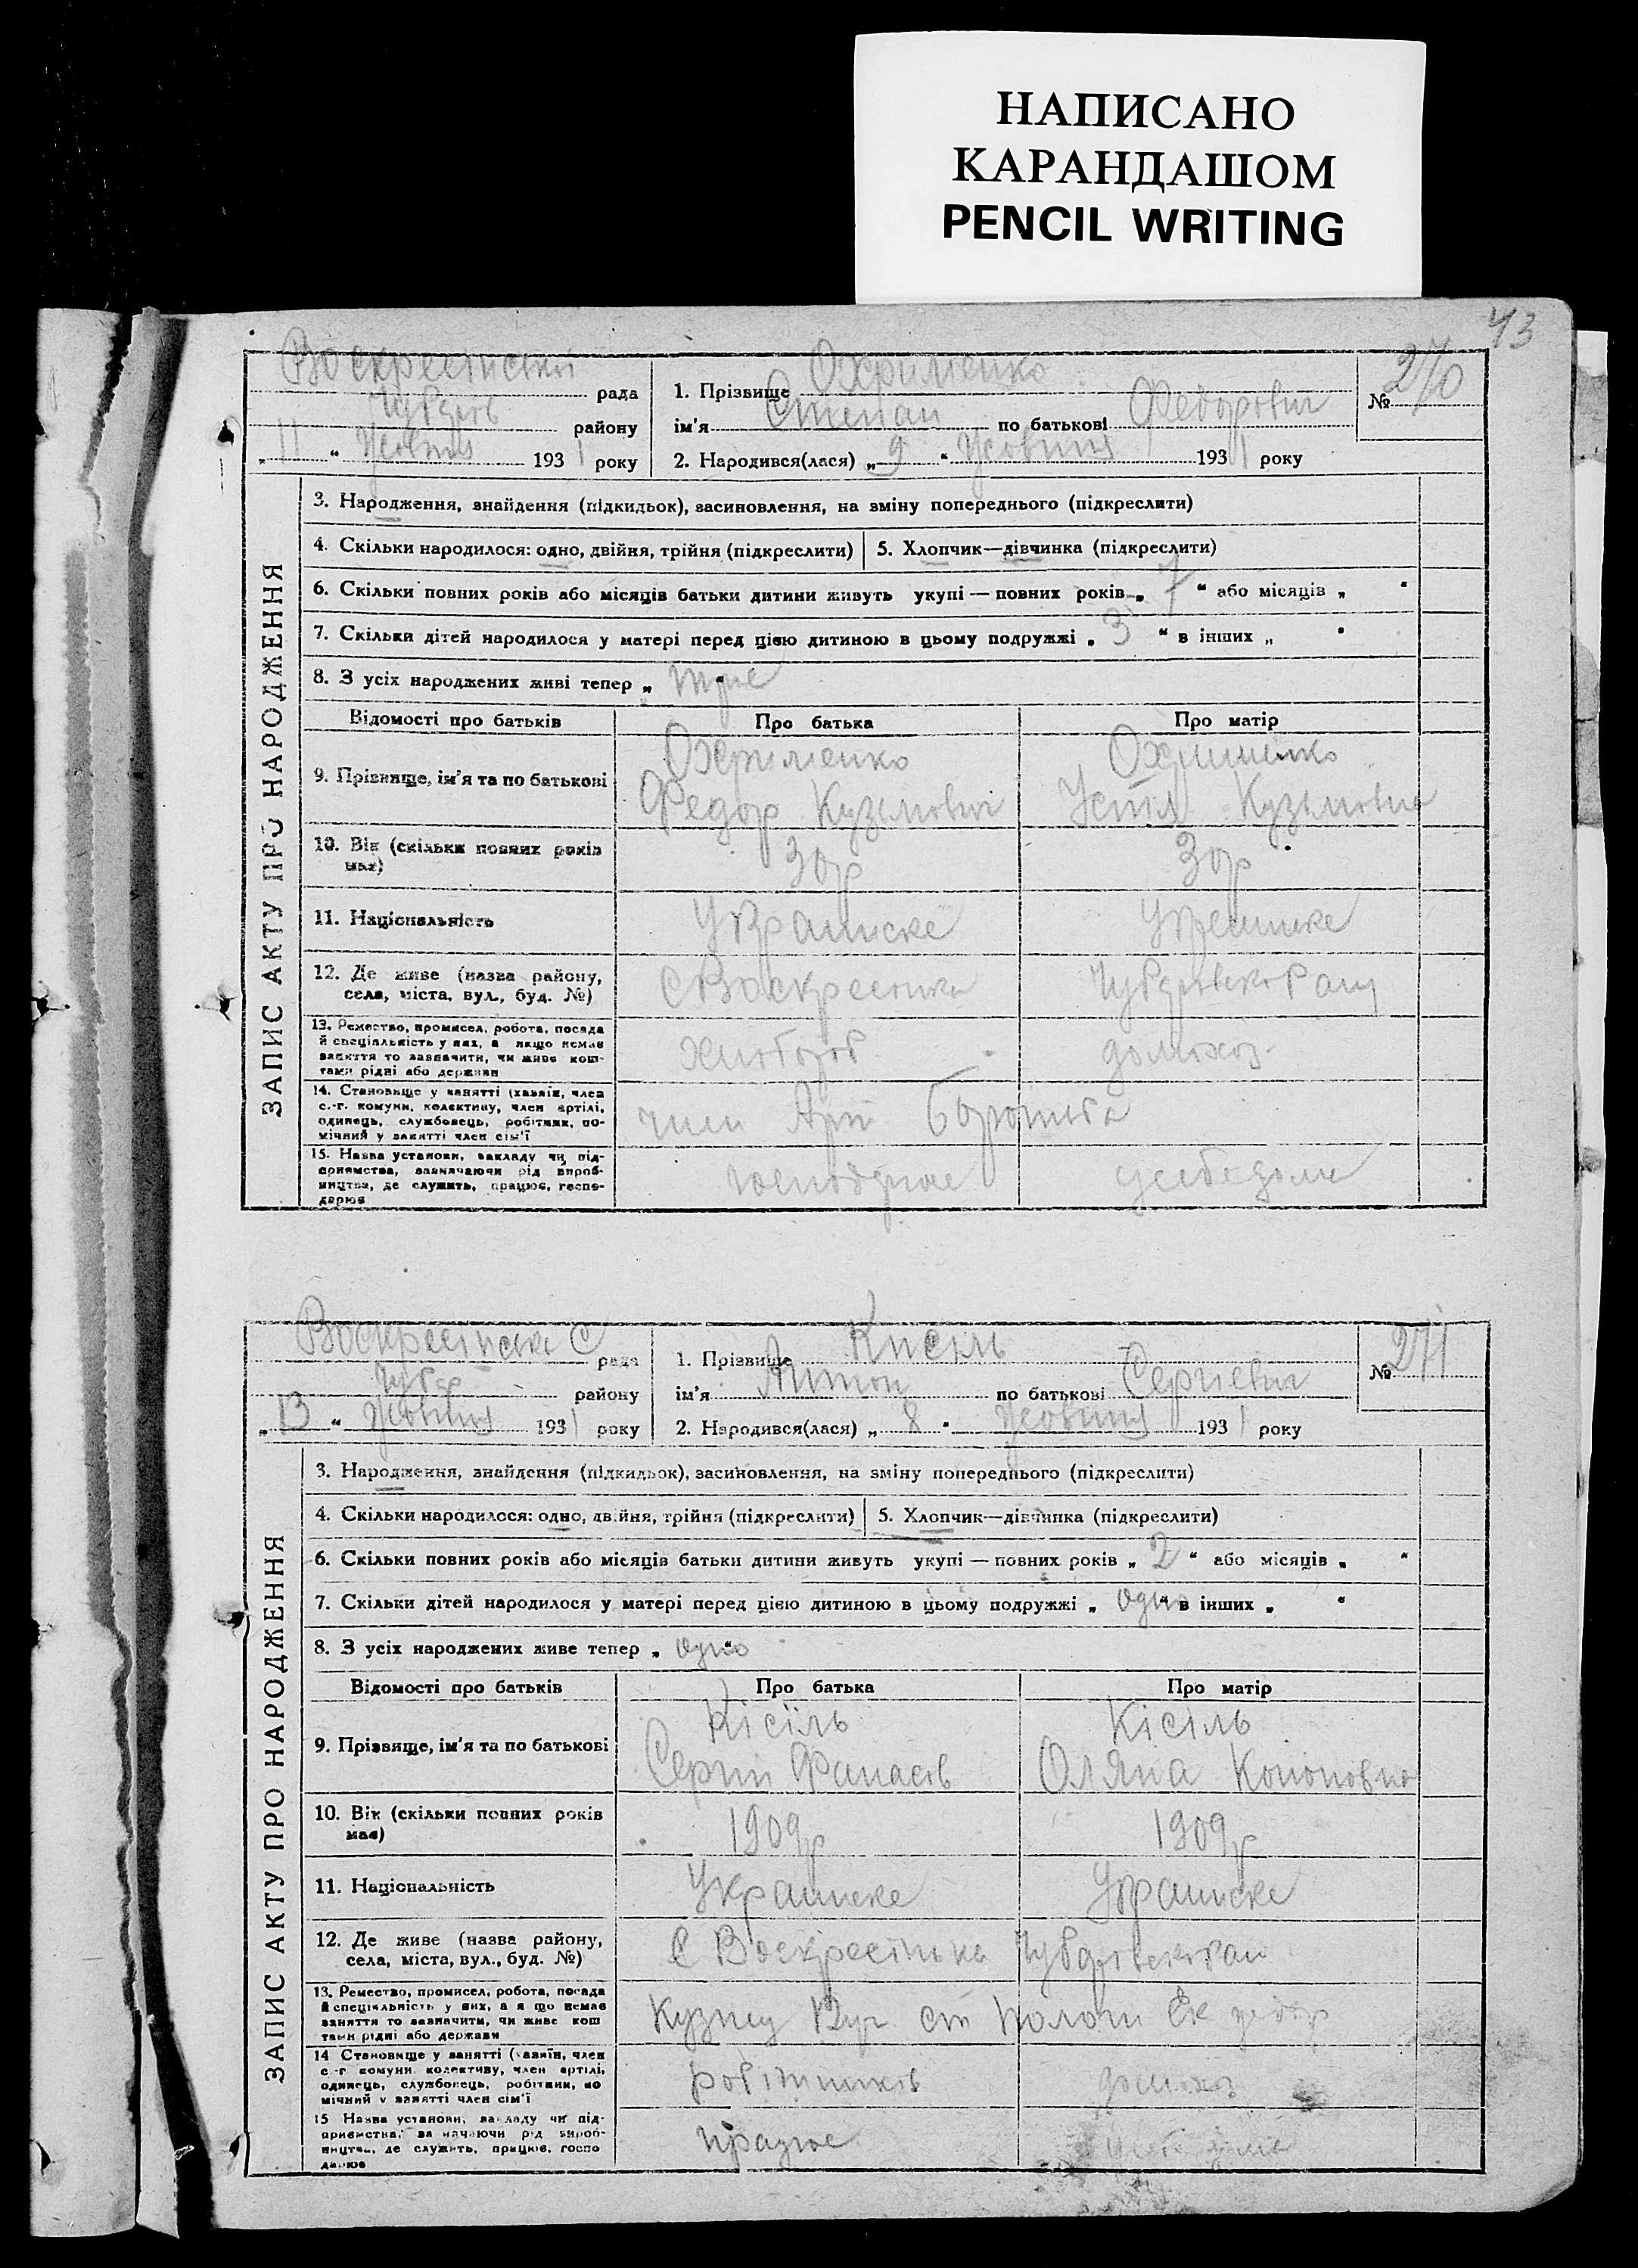 НАПИСАНО
КАРАНДАШОМ
PENCIL WRITING
43
Воскресінської рада
району
„ 11 “ Жовтня 1931 року
1. Прізвище Охріменко
ім'я Степан по батькові Федорович
2. Народився(лася) „ 9 “ Жовтня 1931 року
№ 270
ЗАПИС АКТУ ПРО НАРОДЖЕННЯ
3. Народження, знайдення (підкидьок), засиновлення, на зміну попереднього (підкреслити)
4. Скільки народилося: одно, двійня, трійня (підкреслити) 5. Хлопчик—дівчинка (підкреслити)
6. Скільки повних років або місяців батьки дитини живуть укупі — повних років „ 7 “ або місяців „ “
7. Скільки дітей народилося у матері перед цією дитиною в цьому подружжі „ 3 “ в інших „ “
8. З усіх народжених живі тепер „
Відомості про батьків Про батька Про матір
9. Прізвище, ім'я та по батькові
Охріменко
Федор Кузьмович
Охріменко
Устія Кузьмовна
10. Вік (скільки повних років має)
30р
30р
11. Національність
Украинске
Украинске
12. Де живе (назва району,
села, міста, вул., буд. №)
с Воскресенка
13. Ремество, промисел, робота, посада
й спеціяльність у них, а якщо немає
заняття то зазначити, чи живе кош-
тами рідні або держави
Хлібороб
домохоз.
14. Становище у занятті (хазяїн, член
с.-г. комуни, колективу, член артілі,
одинець, службовець, робітник, по-
мічний у занятті член сім'ї
член Арт Боротьба
15. Назва установи, закладу чи під-
приємства, зазначаючи рід вироб-
ництва, де служить, працює, госпо-
дарює
усебе дома
Воскресінська С рада
району
„ 13 “ Жовтня 1931 року
1. Прізвище Кисіль
ім'я Антон по батькові Сергієвич
2. Народився(лася) „ 8 “ Жовтня 1931 року
№ 271
ЗАПИС АКТУ ПРО НАРОДЖЕННЯ
3. Народження, знайдення (підкидьок), засиновлення, на зміну попереднього (підкреслити)
4. Скільки народилося: одно, двійня, трійня (підкреслити) 5. Хлопчик—дівчинка (підкреслити)
6. Скільки повних років або місяців батьки дитини живуть укупі — повних років „ 2 “ або місяців „ “
7. Скільки дітей народилося у матері перед цією дитиною в цьому подружжі „ одно “ в інших „ “
8. З усіх народжених живе тепер „ одно “
Відомості про батьків Про батька Про матір
9. Прізвище, ім'я та по батькові
Кісіль
Сергій Фанасів
Кісіль
Оляна Кононовна
10. Вік (скільки повних років
має)
1909р
1909р
11. Національність
Украинске
Украинске
12. Де живе (назва району,
села, міста, вул., буд. №)
с Воскресінька
13. Ремество, промисел, робота, посада
й спеціяльність у них, а якщо немає
заняття то зазначити, чи живе кош
тами рідні або держави
ст Пологи
14 Становище у занятті (хазяїн, член
с-г комуни колективу, член артілі,
одинець, службовець, робітник, по
мічний у занятті член сім'ї
домохоз
15 Назва установи, закладу чи під-
приємства, зазначаючи рід вироб-
ництва, де служить, працює, госпо
дарює
працює